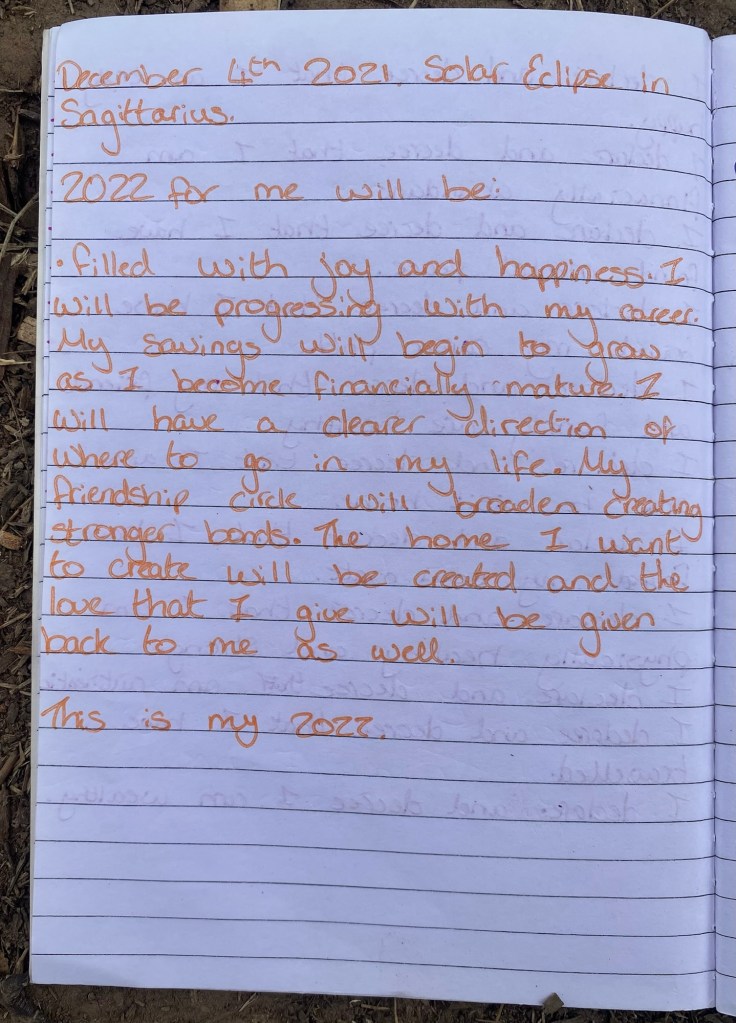 December 4th 2021. Solar Eclipse in
Sagittarius.
2022 for me will be:
• filled with joy and happiness. I
will be progressing with my career.
My savings will begin to grow
as I become financially mature. I
will have a clearer direction of
where to go in my life. My
friendship circle will broaden creating
stronger bonds. The home I want
to create will be created and the
love that I give will be given
back to me as well.
This is my 2022.